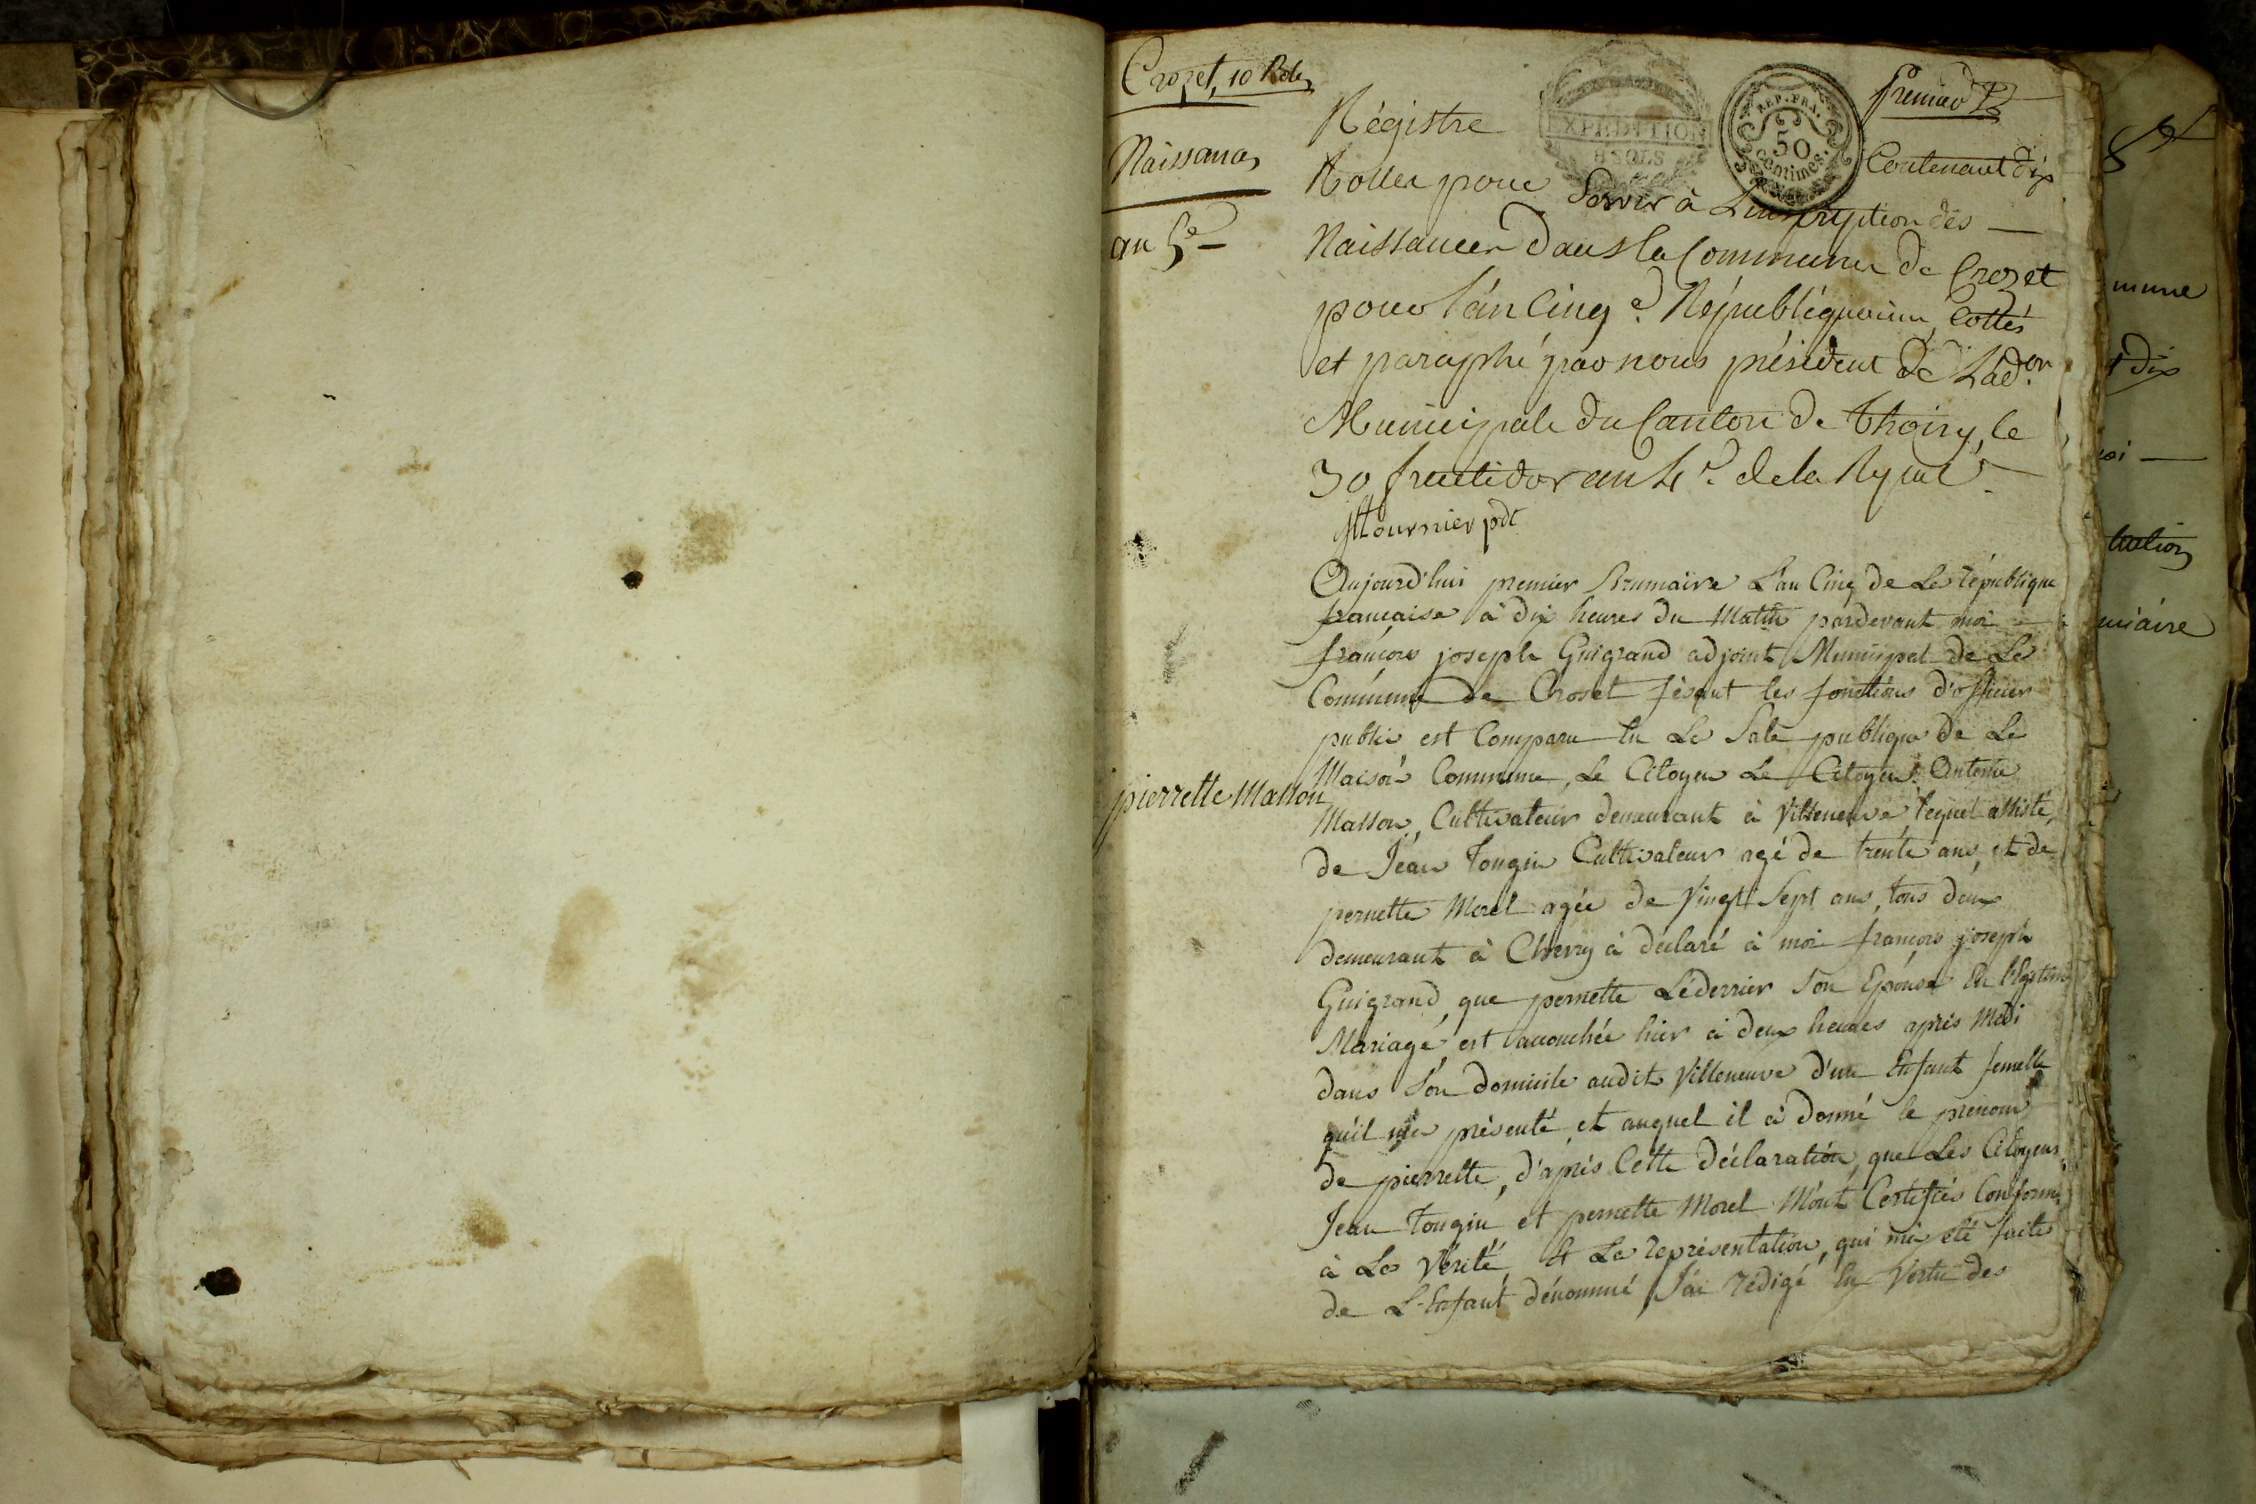 Crozet, 10 Roles
Naissances
an 5e
EXPEDITION
8 SOLS
REP. FRA.
50
centimes.
premier
Régistre
Contenant dix
Rolles pour Servir à L'inscription des
Naissances dans la Commune de Crozet
pour l'an Cinq e. Républiquain, Cottés
et paraphé par nous président de L'ad.on
Municipale du Canton de Thoiry, le
30 fructidor an 4e. de la Répu
fournier pdt
Aujourd'hui premier Brumaire L'an Cinq de La république
francaise à dix heures du Matin pardevant moi
françois joseph Guigrand adjoint Municipal de La
Commune de Croset fésant les fonctions d'officier
public est Comparu En La Sale publique de La
Maison Commune, Le Citoyen Le Citoyen Antoine
pierrette Masson
Masson, Cultivateur demeurant à Villeneuve lequel assisté,
de Jean Tougin Cultivateur agé de trente ans, et de
pernette Morel agée de Vingt Sept ans, tous deux
demeurant à Chevry à déclaré à moi françois joseph
Guigrand, que pernette Léderrier Son Epouse En légitime
Mariage, est accouchée hier à deux heures après Midi
dans Son domicile audit Villeneuve d'un Enfant femelle
qu'il m'a présenté et auquel il à donné le prenom
de pierrette, d'après Cette déclaration, que Les Citoyens
Jean Tougin et pernette Morel M'ont Certifiés Conforme
à La Vérité, Et La représentation, qui m'a été faite
de L'Enfant dénommé, J'ai rédigé En Vertu des
mune
dix
oi
tution
miaire